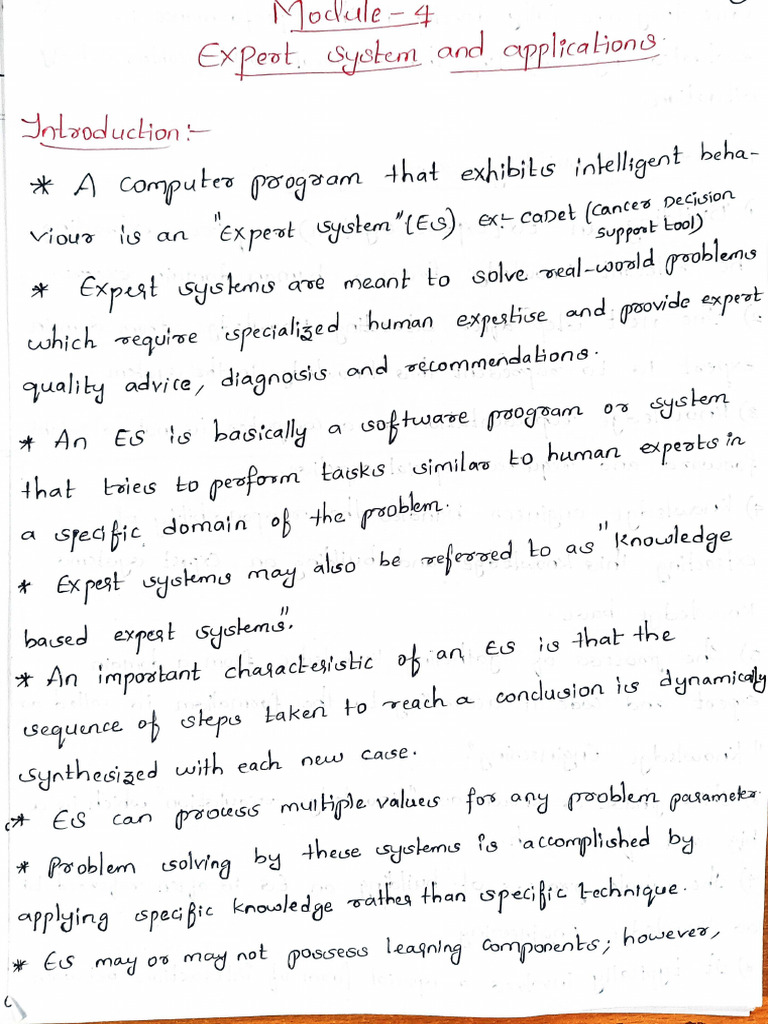 Module - 4
Expert system and applications
Introduction:-
* A computer program that exhibits intelligent beha-
viour is an "Expert system"(ES). ex:- CaDet (Cancer Decision
support tool)
* Expert systems are meant to solve real-world problems
which require specialized human expertise and provide expert
quality advice, diagnosis and recommendations.
* An ES is basically a software program or system
that tries to perform tasks similar to human experts in
a specific domain of the problem.
* Expert systems may also be referred to as "knowledge
based expert systems".
* An important characteristic of an ES is that the
sequence of steps taken to reach a conclusion is dynamically
synthesized with each new case.
* ES can process multiple values for any problem parameter.
* Problem solving by these systems is accomplished by
applying specific knowledge rather than specific technique.
* ES may or may not possess learning components; however,